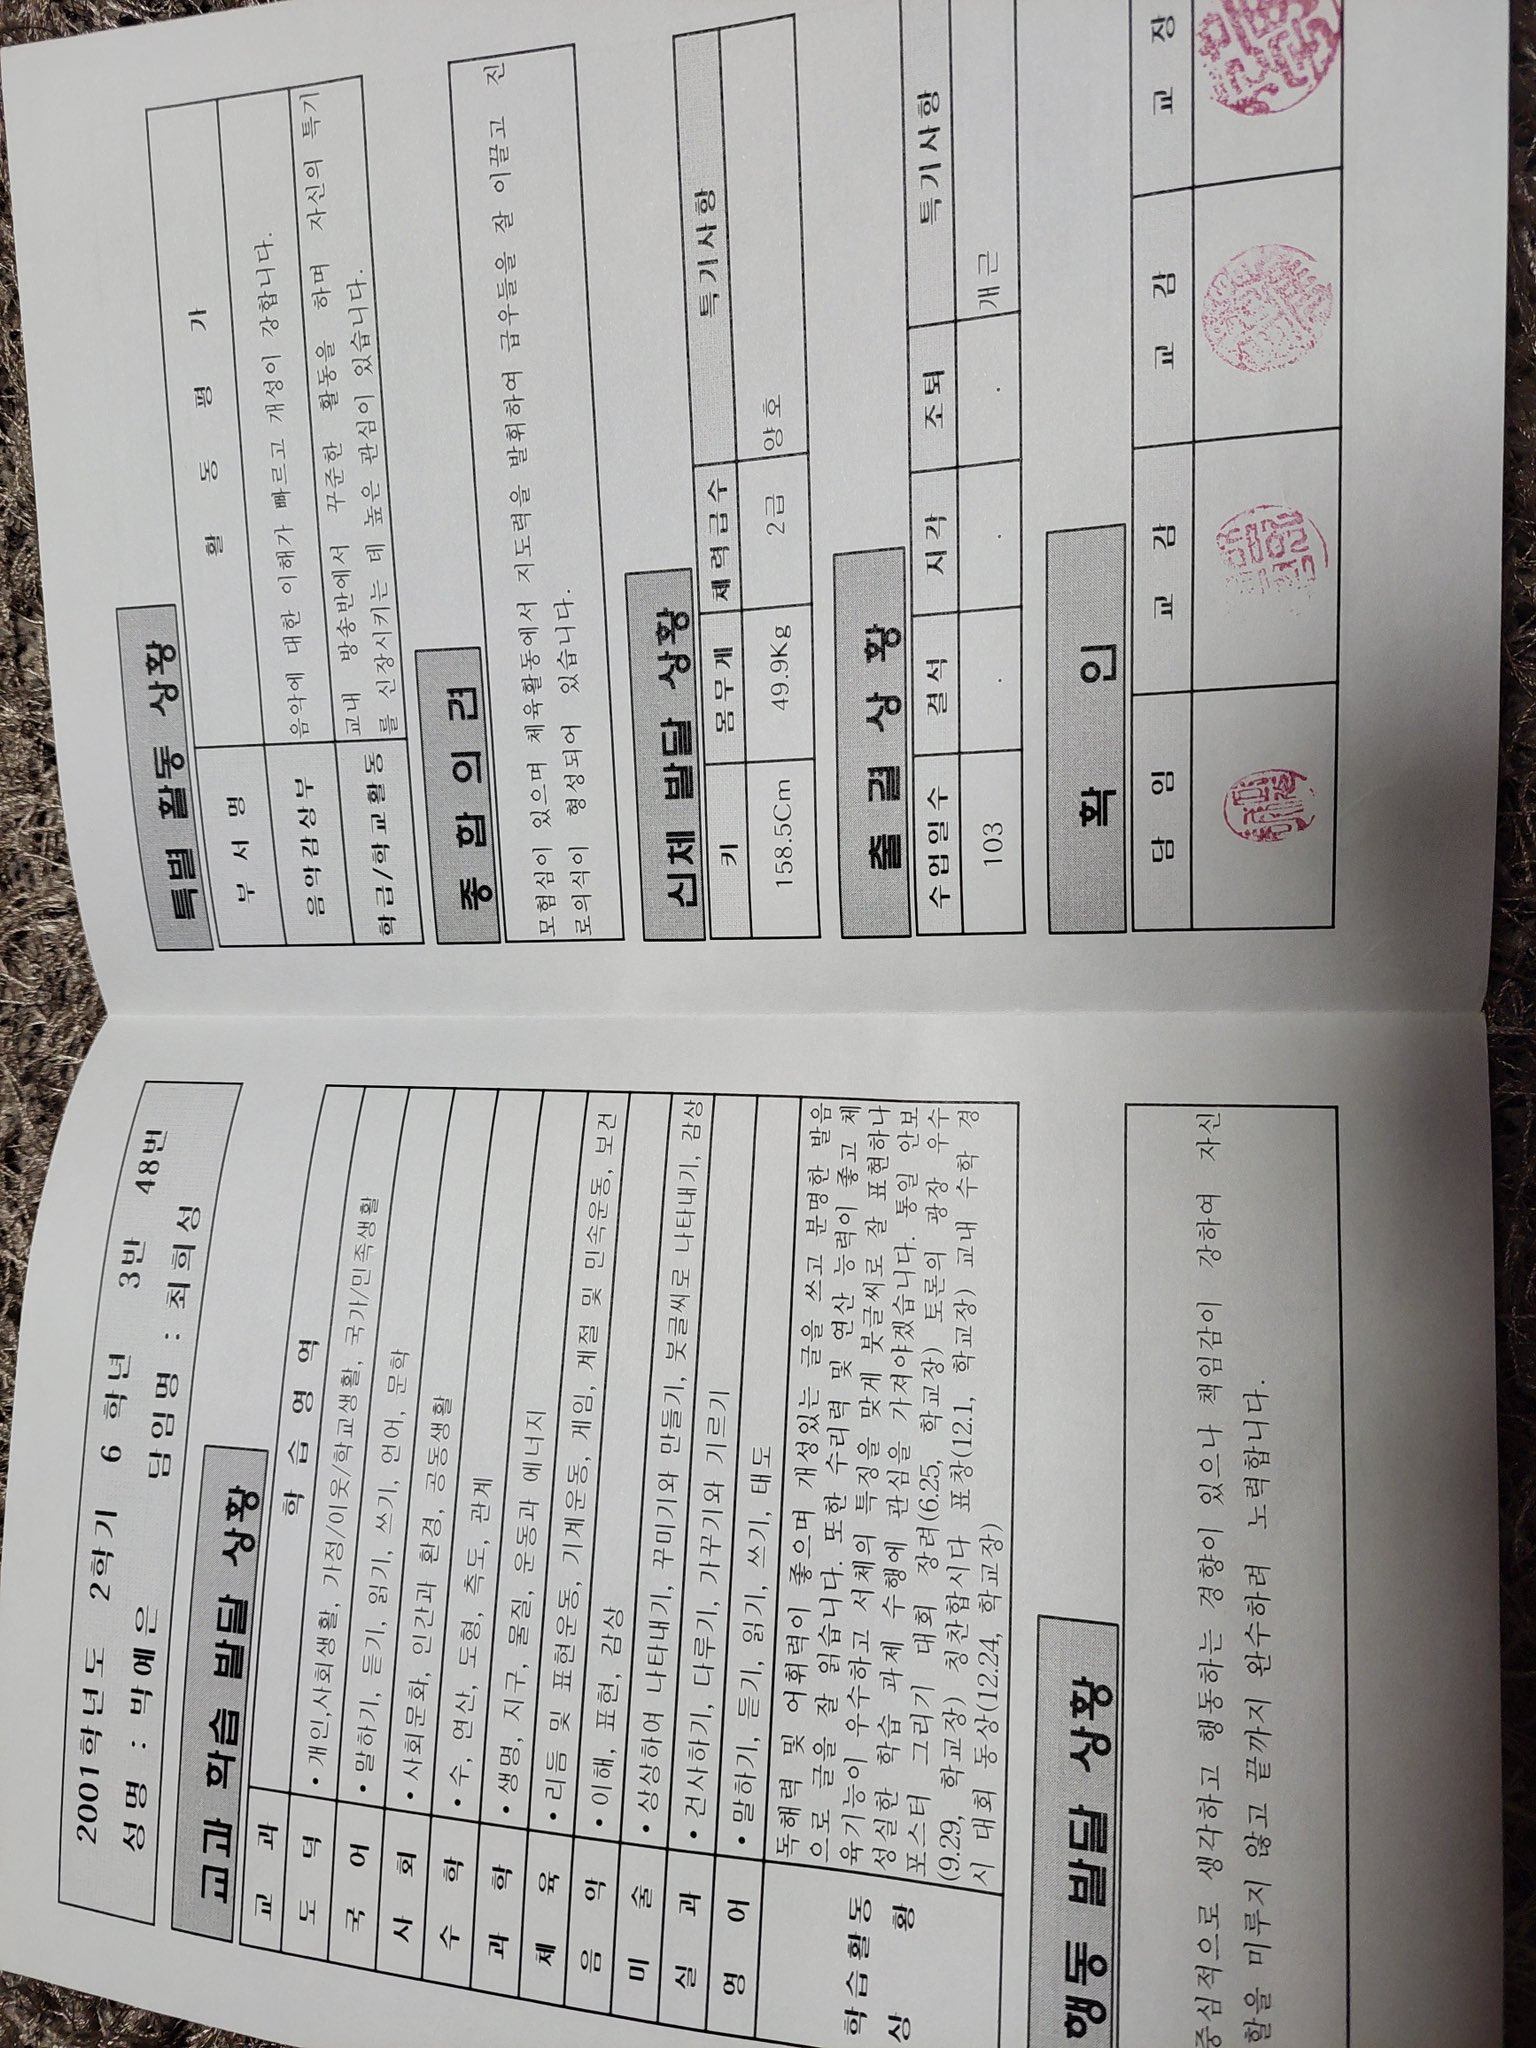 2001학년도 2학기 6 학년 3반 48번
성명 : 박예은 담임명 : 최희성
교과 학습 발달 상황
교 과 학 습 영 역
도 덕 • 개인,사회생활, 가정/이웃/학교생활, 국가/민족생활
국 어 • 말하기, 듣기, 읽기, 쓰기, 언어, 문학
사 회 • 사회문화, 인간과 환경, 공동생활
수 학 • 수, 연산, 도형, 측도, 관계
과 학 • 생명, 지구, 물질, 운동과 에너지
체 육 • 리듬 및 표현운동, 기계운동, 게임, 계절 및 민속운동, 보건
음 악 • 이해, 표현, 감상
미 술 • 상상하여 나타내기, 꾸미기와 만들기, 붓글씨로 나타내기, 감상
실 과 • 건사하기, 다루기, 가꾸기와 기르기
영 어 • 말하기, 듣기, 읽기, 쓰기, 태도
학습활동
상 황
독해력 및 어휘력이 좋으며 개성있는 글을 쓰고 분명한 발음
으로 글을 잘 읽습니다. 또한 수리력 및 연산 능력이 좋고 체
육기능이 우수하고 서체의 특징을 맞게 붓글씨로 잘 표현하나
성실한 학습 과제 수행에 관심을 가져야겠습니다. 통일 안보
포스터 그리기 대회 장려(6.25, 학교장) 토론의 광장 우수
(9.29, 학교장) 칭찬합시다 표창(12.1, 학교장) 교내 수학 경
시 대회 동상(12.24, 학교장)
행동 발달 상황
중심적으로 생각하고 행동하는 경향이 있으나 책임감이 강하여 자신
할을 미루지 않고 끝까지 완수하려 노력합니다.
특별 활동 상황
부 서 명 활 동 평 가
음악감상부 음악에 대한 이해가 빠르고 개성이 강합니다.
학급/학교활동 교내 방송반에서 꾸준한 활동을 하며 자신의 특기
를 신장시키는 데 높은 관심이 있습니다.
종 합 의 견
모험심이 있으며 체육활동에서 지도력을 발휘하여 급우들을 잘 이끌고 진
로의식이 형성되어 있습니다.
신체 발달 상황
키 몸무게 체력급수 특기사항
158.5Cm 49.9Kg 2급 양호
출 결 상 황
수업일수 결석 지각 조퇴 특기사항
103 . . . 개근
확 인
담 임 교 감 교 감 교 장